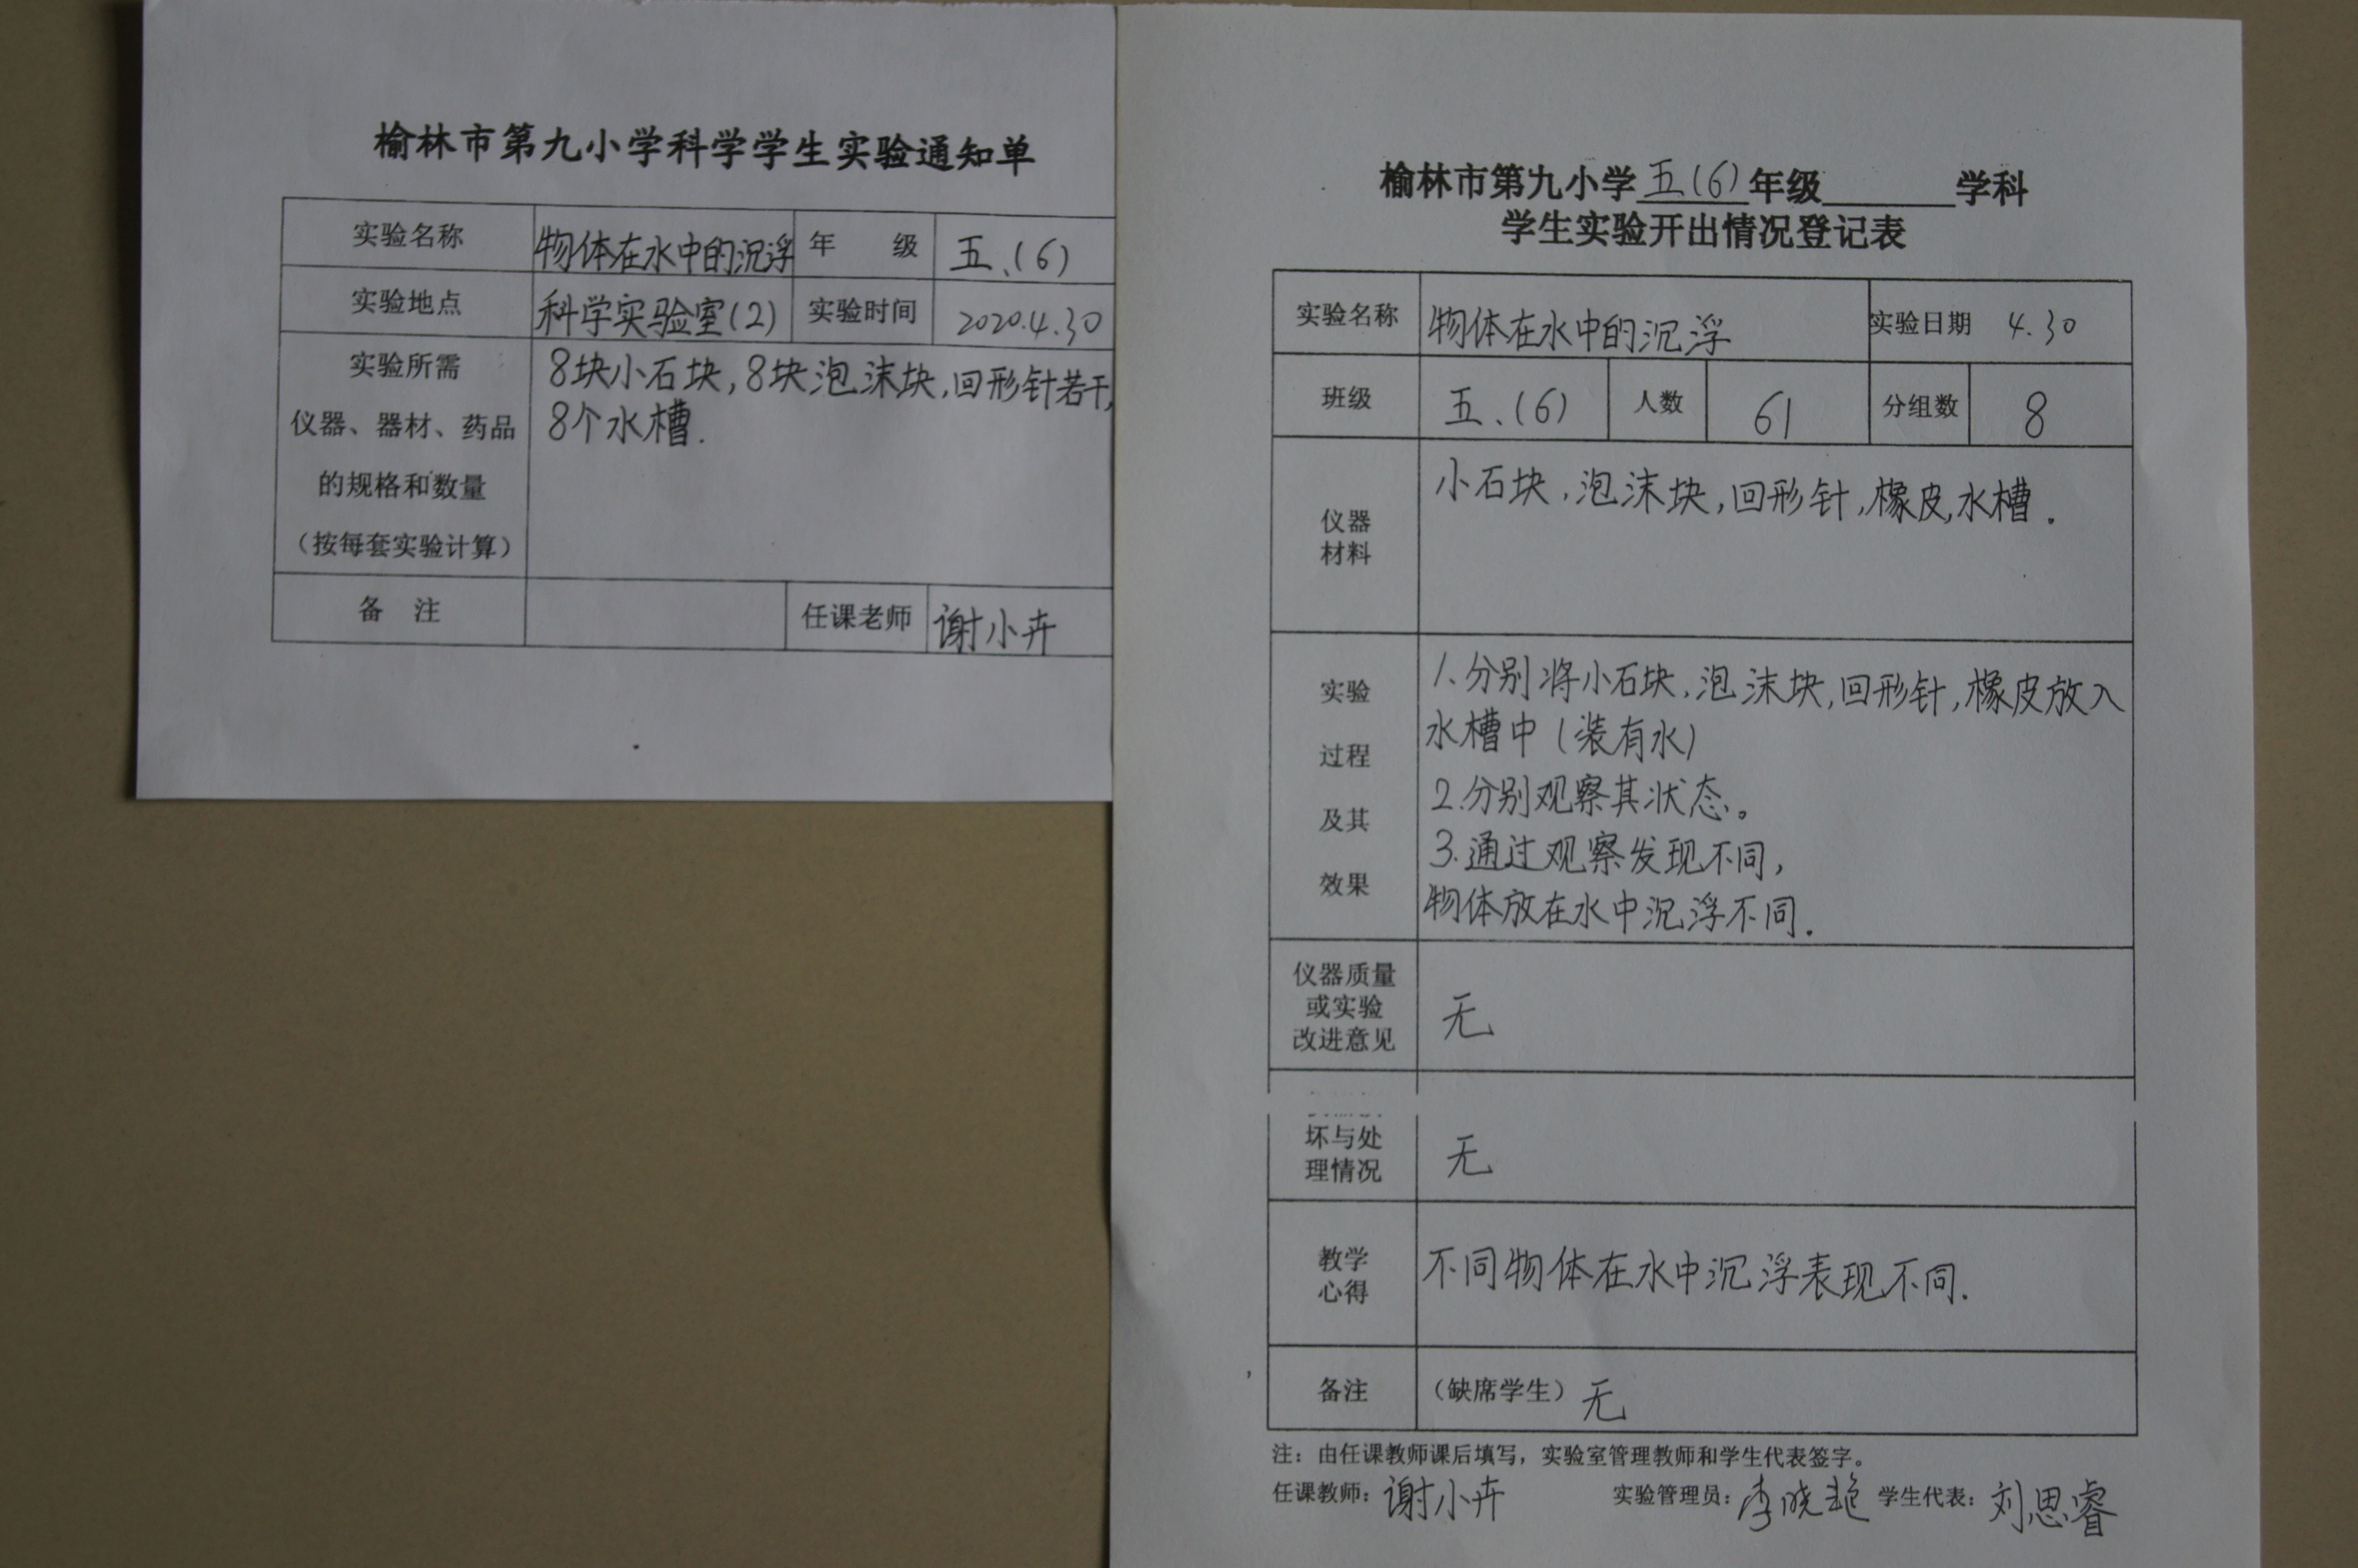 榆林市第九小学科学学生实验通知单
实验名称 物体在水中的沉浮 年 级 五.(6)
实验地点 科学实验室(2) 实验时间 2020.4.30
实验所需
仪器、器材、药品
的规格和数量
（按每套实验计算）
8块小石块,8块泡沫块,回形针若干,
8个水槽.
备 注 任课老师 谢小卉
榆林市第九小学五(6)年级 学科
学生实验开出情况登记表
实验名称 物体在水中的沉浮 实验日期 4.30
班级 五.(6) 人数 61 分组数 8
仪器
材料
小石块,泡沫块,回形针,橡皮,水槽.
实验
过程
及其
效果
1.分别将小石块,泡沫块,回形针,橡皮放入
水槽中(装有水)
2.分别观察其状态。
3.通过观察发现不同,
物体放在水中沉浮不同.
仪器质量
或实验
改进意见
无
坏与处
理情况
无
教学
心得
不同物体在水中沉浮表现不同.
备注 （缺席学生）无
注：由任课教师课后填写，实验室管理教师和学生代表签字。
任课教师：谢小卉 实验管理员：李晓艳 学生代表：刘思睿